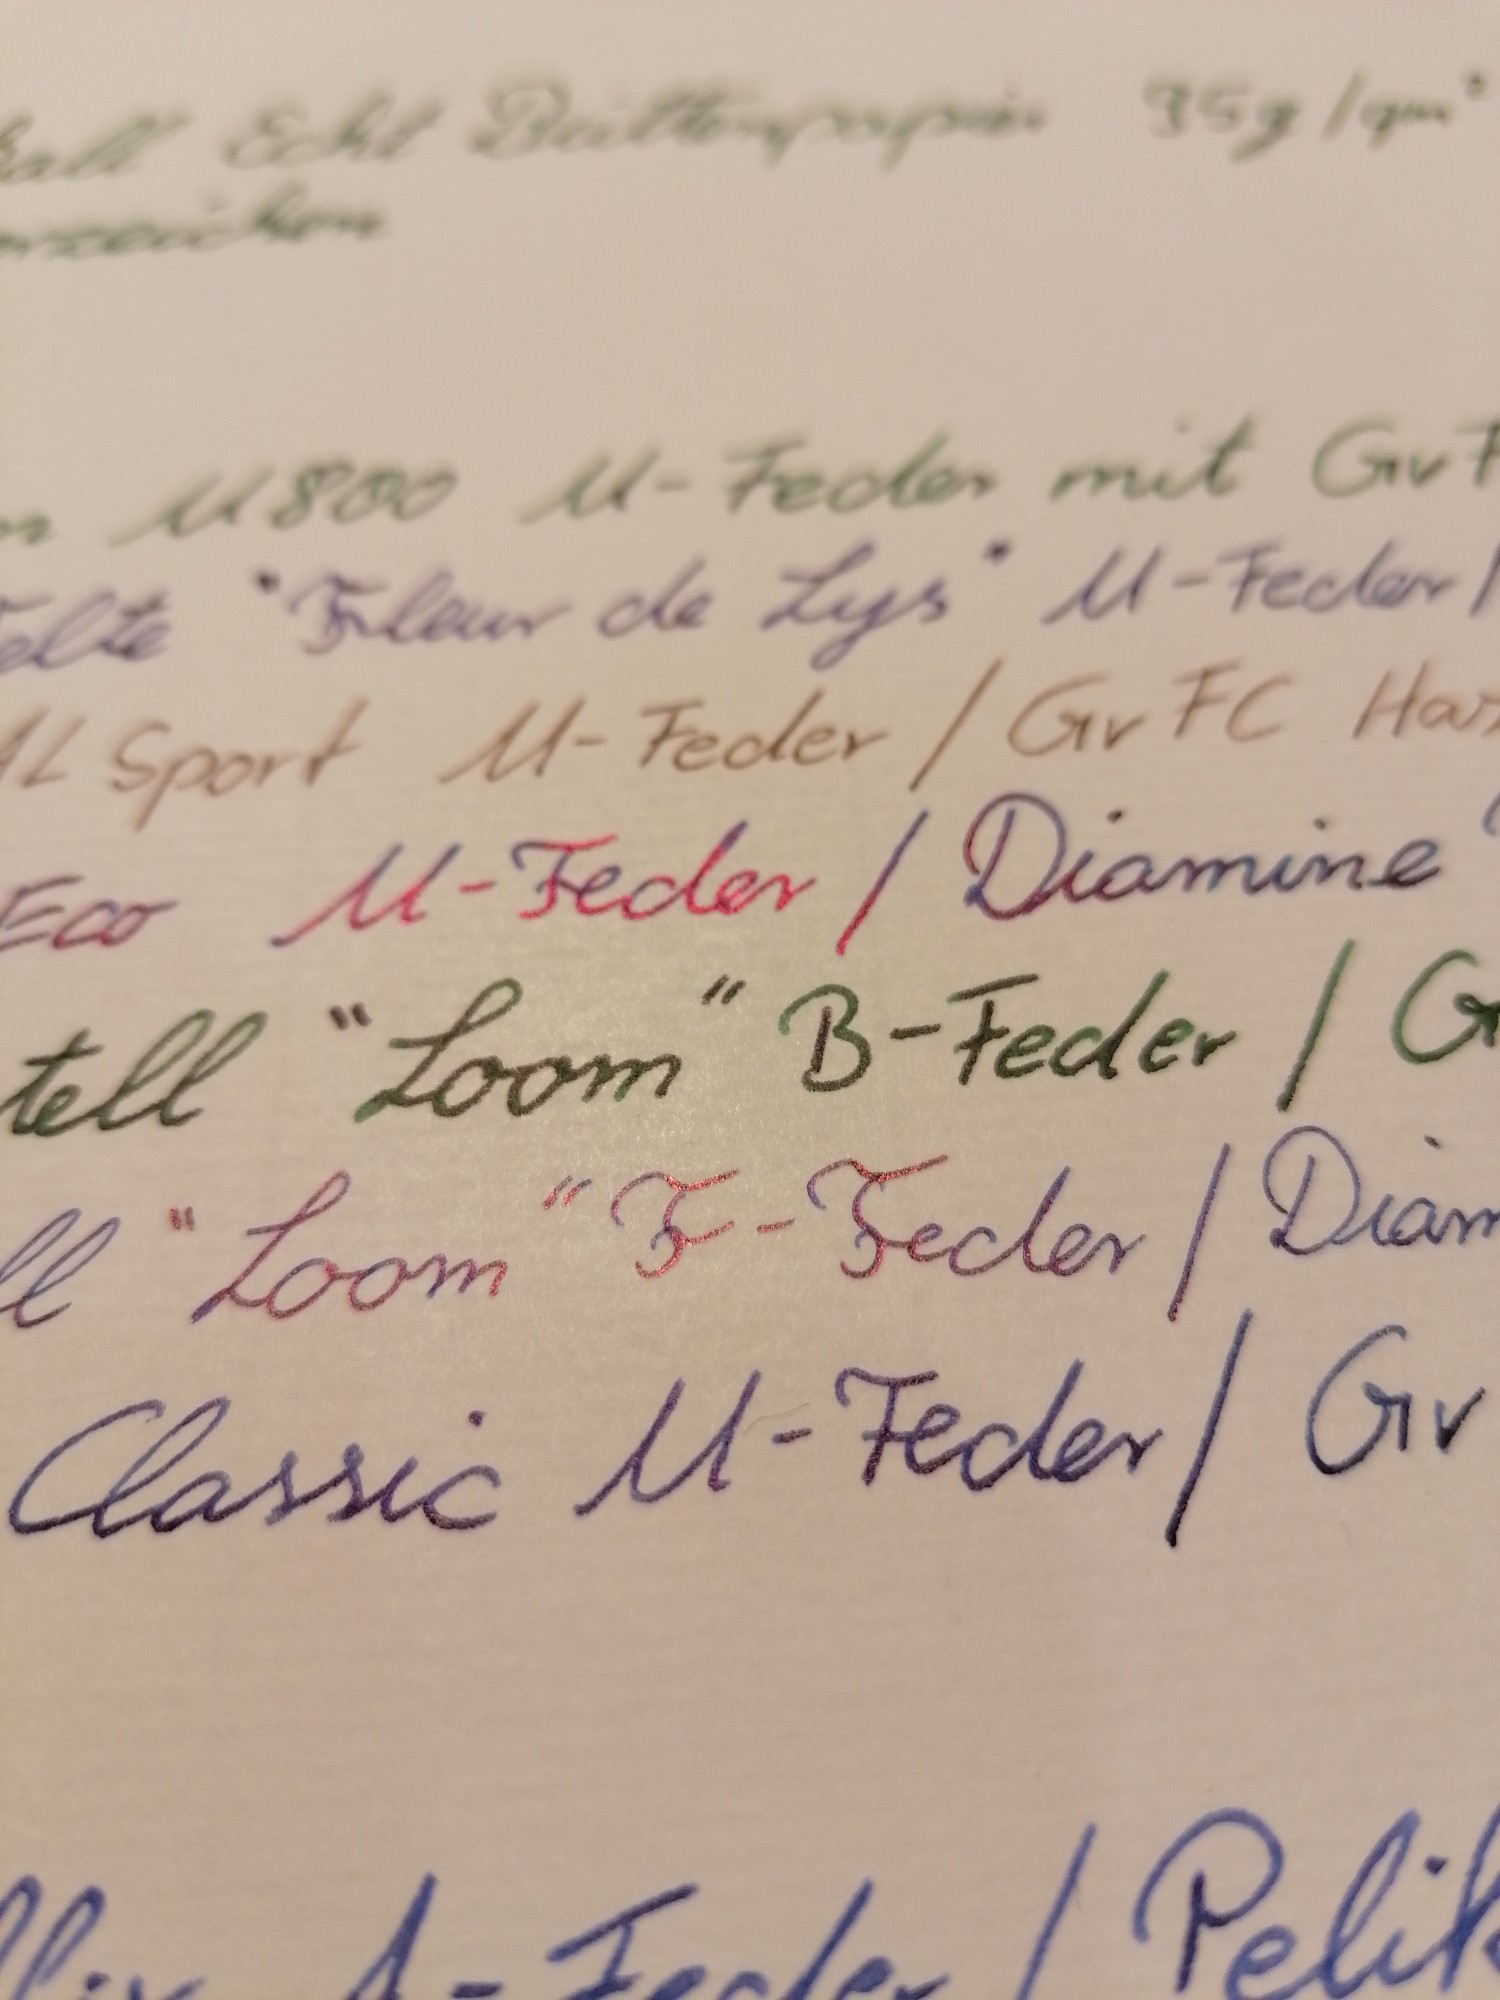 Echt Büttenpapier 95g/qm²
M800 M-Feder mit GvF
"Fleur de Lys" M-Feder /
AL Sport M-Feder / GvFC Haz
Eco M-Feder / Diamine
tell "Loom" B-Feder / G
ll "Loom" F-Feder / Diam
Classic M-Feder / Gv
A-Feder / Pelik